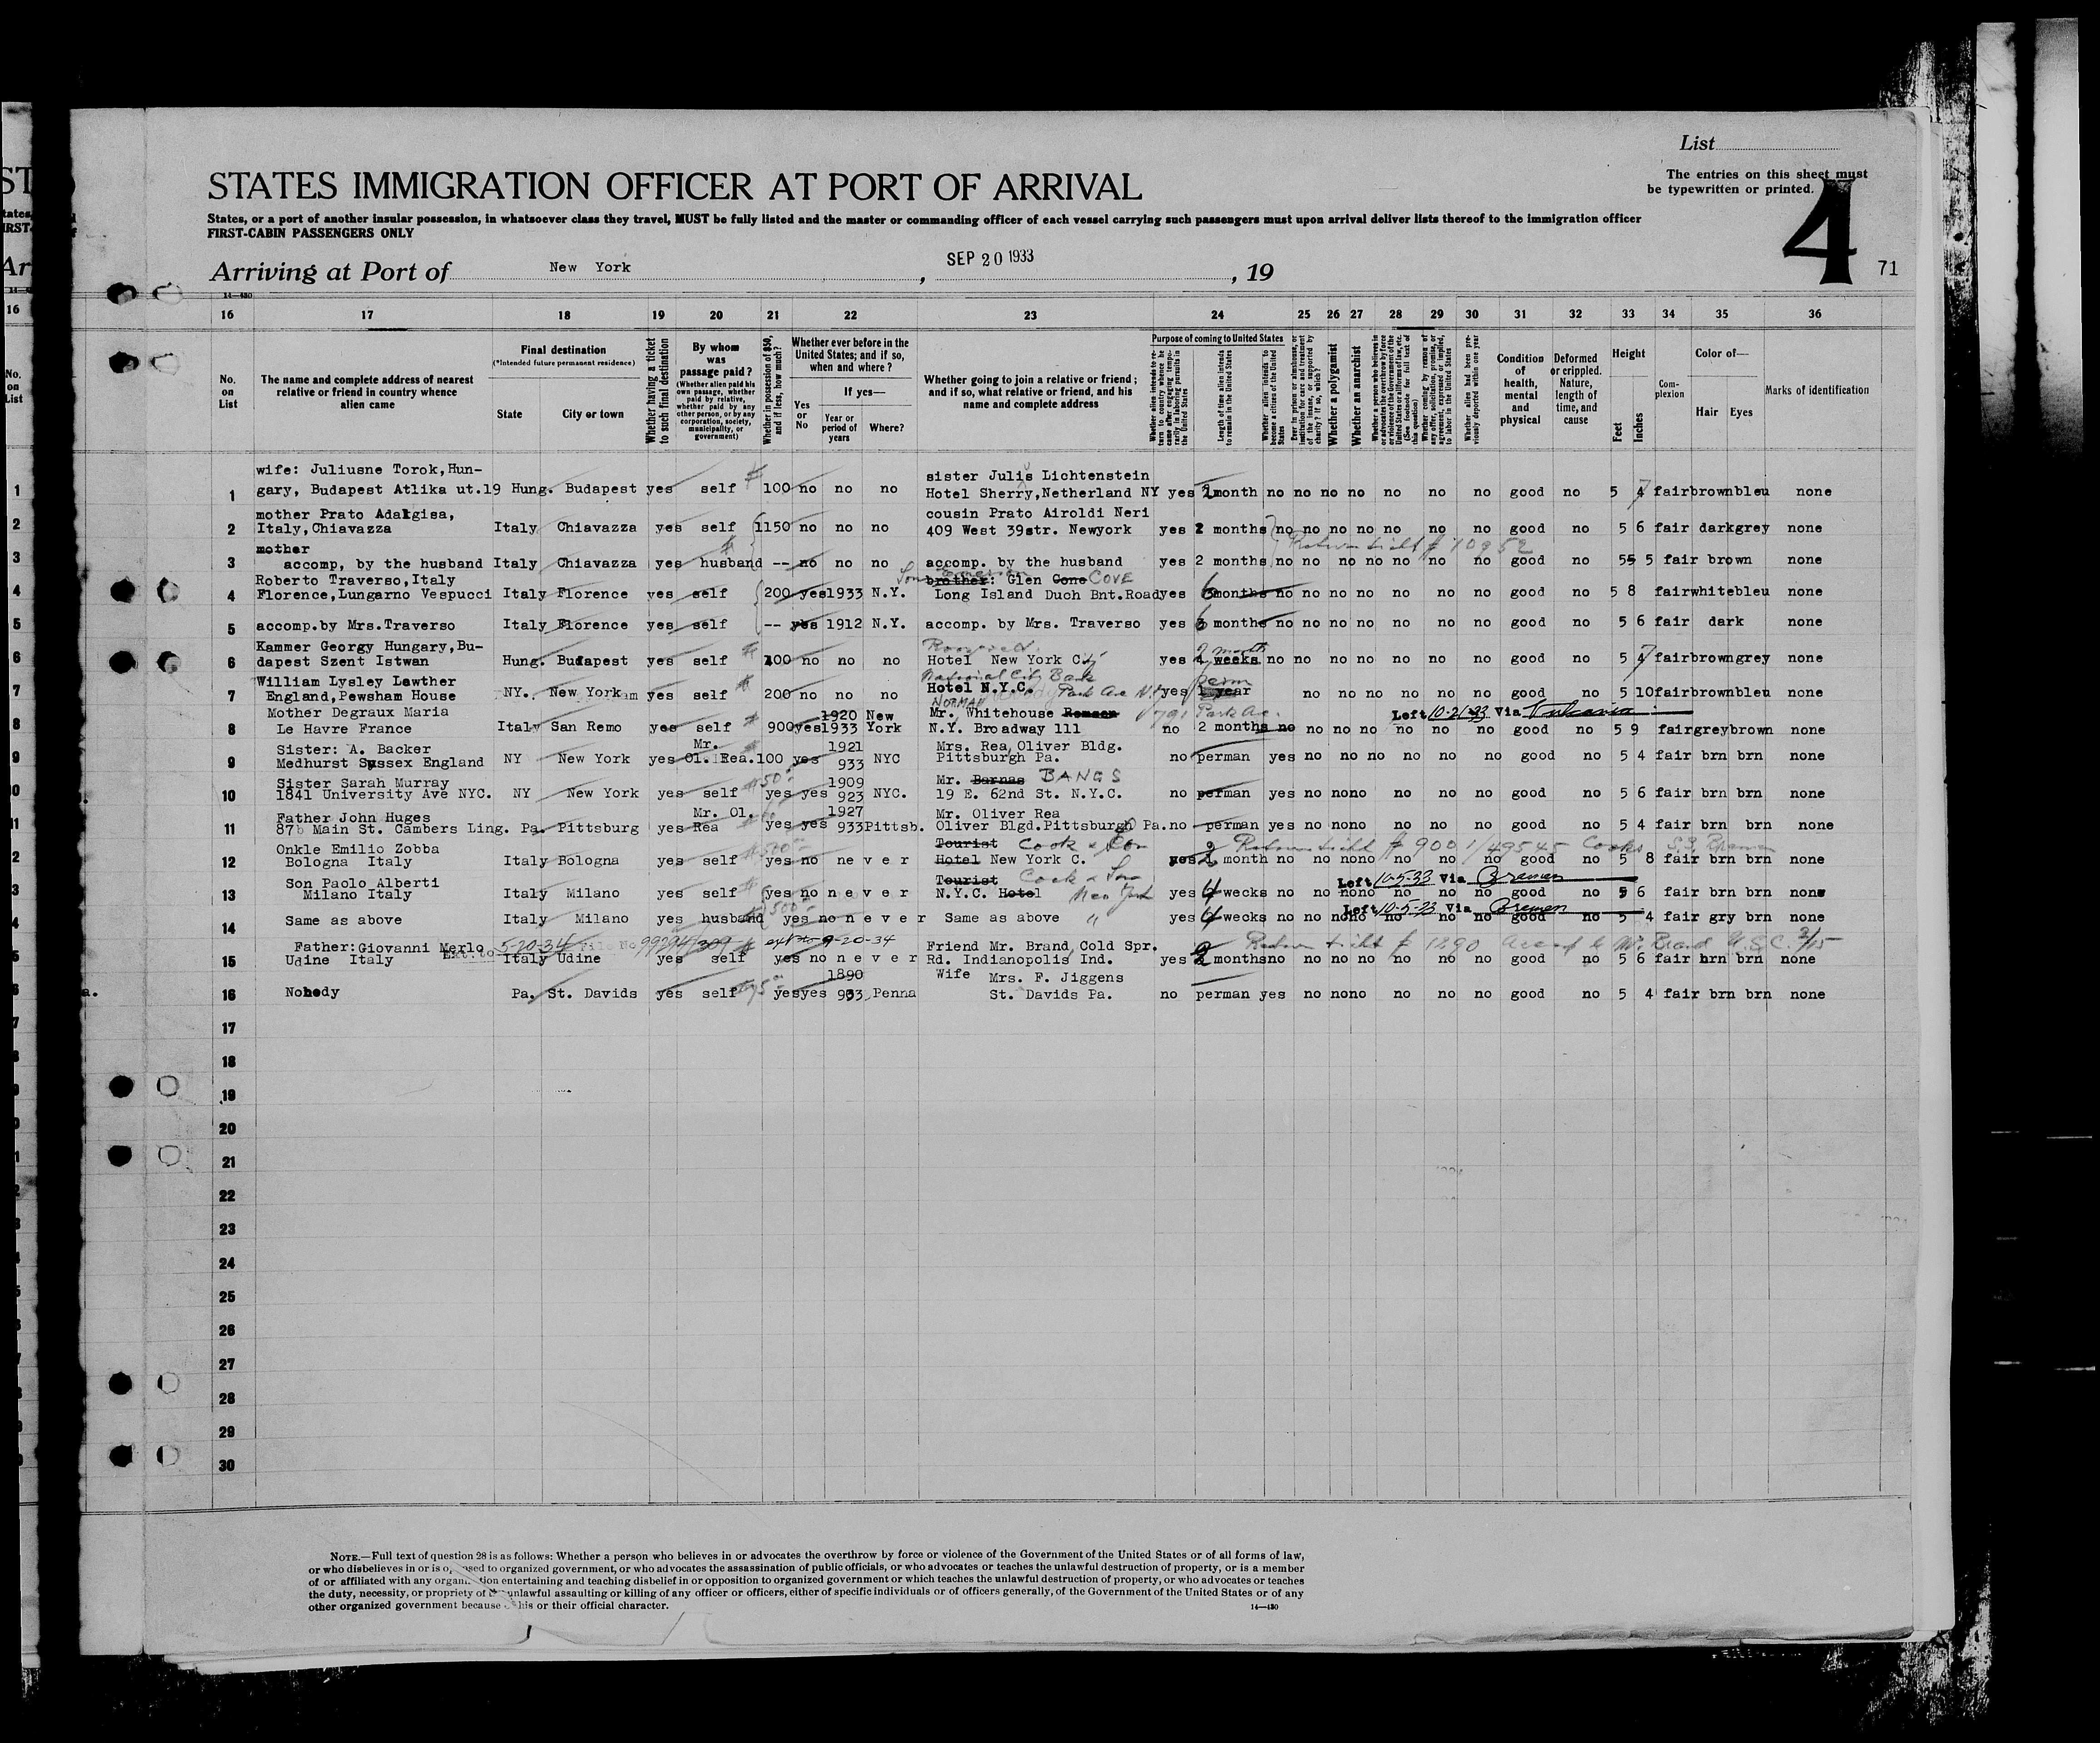 List
STATES IMMIGRATION OFFICER AT PORT OF ARRIVAL
The entries on this sheet must
be typewritten or printed.
States, or a port of another insular possession, in whatsoever class they travel, MUST be fully listed and the master or commanding officer of each vessel carrying such passengers must upon arrival deliver lists thereof to the immigration officer
FIRST-CABIN PASSENGERS ONLY
4
71
Arriving at Port of New York, SEP 20 1933, 19
14—430
16 17 18 19 20 21 22 23 24 25 26 27 28 29 30 31 32 33 34 35 36
No. on List
The name and complete address of nearest relative or friend in country whence alien came
Final destination
(*Intended future permanent residence)
State City or town
Whether having a ticket to such final destination
By whom was passage paid?
(Whether alien paid his own passage, whether paid by relative, whether paid by any other person, or by any corporation, society, municipality, or government)
Whether in possession of $50, and if less, how much?
Whether ever before in the United States; and if so, when and where?
Yes or No
If yes—
Year or period of years
Where?
Whether going to join a relative or friend; and if so, what relative or friend, and his name and complete address
Purpose of coming to United States
Length of time alien intends to remain in the United States
Whether alien intends to become a citizen of the United States
Whether a polygamist
Whether an anarchist
Condition of health, mental and physical
Deformed or crippled. Nature, length of time, and cause
Height
Feet Inches
Complexion
Color of—
Hair Eyes
Marks of identification
wife: Juliusne Torok, Hun- sister Julis Lichtenstein
1 gary, Budapest Atlika ut.19 Hung. Budapest yes self 100 no no no Hotel Sherry, Netherland NY yes 2 month no no no no no no no good no 5 7 fair brown bleu none
mother Prato Adalgisa, cousin Prato Airoldi Neri
2 Italy, Chiavazza Italy Chiavazza yes self 1150 no no no 409 West 39str. Newyork yes 2 months no no no no no no no good no 5 6 fair dark grey none
mother Return ticket # 10952
3 accomp, by the husband Italy Chiavazza yes husband -- no no no accomp. by the husband yes 2 months no no no no no no no good no 5 5 fair brown none
Roberto Traverso, Italy brother: Glen Cone COVE
4 Florence, Lungarno Vespucci Italy Florence yes self 200 yes 1933 N.Y. Long Island Duch Bnt. Road yes 6 months no no no no no no no good no 5 8 fair white bleu none
5 accomp. by Mrs. Traverso Italy Florence yes self -- yes 1912 N.Y. accomp. by Mrs. Traverso yes 6 months no no no no no no no good no 5 6 fair dark none
Kammer Georgy Hungary, Bu- 2 month
6 dapest Szent Istwan Hung. Budapest yes self 100 no no no Hotel New York City yes 4 weeks no no no no no no no good no 5 7 fair brown grey none
William Lysley Lawther National City Bank perm
7 England, Pewsham House NY. New York yes self 200 no no no Hotel N.Y.C. Park Ave N.Y. yes 1 year no no no no no no good no 5 10 fair brown bleu none
Mother Degraux Maria 1920 New NORMAN Mr. Whitehouse 791 Park Ave. Left 10-21-33 Via Vulcania
8 Le Havre France Italy San Remo yes self 900 yes 1933 York N.Y. Broadway 111 no 2 months no no no no no no no good no 5 9 fair grey brown none
Sister: A. Backer Mr. 1921 Mrs. Rea, Oliver Bldg.
9 Medhurst Sussex England NY New York yes Ol. Rea. 100 yes 933 NYC Pittsburgh Pa. no perman yes no no no no no no good no 5 4 fair brn brn none
Sister Sarah Murray 50 1909 Mr. Barnas BANGS
10 1841 University Ave NYC. NY New York yes self yes yes 923 NYC. 19 E. 62nd St. N.Y.C. no perman yes no no no no no no good no 5 6 fair brn brn none
Father John Huges Mr. Ol. 1927 Mr. Oliver Rea
11 87 Main St. Cambers Ling. Pa. Pittsburg yes Rea yes yes 933 Pittsb. Oliver Blgd. Pittsburgh Pa. no perman yes no no no no no no good no 5 4 fair brn brn none
Onkle Emilio Zobba 500 Tourist Cook & Son Return ticket # 9001/49545 Cooks S.S. Bremen
12 Bologna Italy Italy Bologna yes self yes no never Hotel New York C. yes 2 month no no no no no no no good no 5 8 fair brn brn none
Son Paolo Alberti Tourist Cook & Son Left 10-5-33 Via Bremen
13 Milano Italy Italy Milano yes self yes no never N.Y.C. Hotel New York yes 4 weeks no no no no no no no good no 5 6 fair brn brn none
500 Left 10-5-33 Via Bremen
14 Same as above Italy Milano yes husband yes no never Same as above " yes 4 weeks no no no no no no no good no 5 4 fair gry brn none
Father: Giovanni Merlo Ext. to 5-20-34 File No 99294/309 ext to 9-20-34 Friend Mr. Brand, Cold Spr. Return ticket # 1290
15 Udine Italy Italy Udine yes self yes no never Rd. Indianopolis Ind. yes 2 months no no no no no no no good no 5 6 fair brn brn none
1890 Wife Mrs. F. Jiggens
16 Nobody Pa. St. Davids yes self 75 yes yes 933 Penna St. Davids Pa. no perman yes no no no no no no good no 5 4 fair brn brn none
17
18
19
20
21
22
23
24
25
26
27
28
29
30
NOTE.—Full text of question 28 is as follows: Whether a person who believes in or advocates the overthrow by force or violence of the Government of the United States or of all forms of law,
or who disbelieves in or is opposed to organized government, or who advocates the assassination of public officials, or who advocates or teaches the unlawful destruction of property, or is a member
of or affiliated with any organization entertaining and teaching disbelief in or opposition to organized government or which teaches the unlawful destruction of property, or who advocates or teaches
the duty, necessity, or propriety of the unlawful assaulting or killing of any officer or officers, either of specific individuals or of officers generally, of the Government of the United States or of any
other organized government because of his or their official character.
14—430